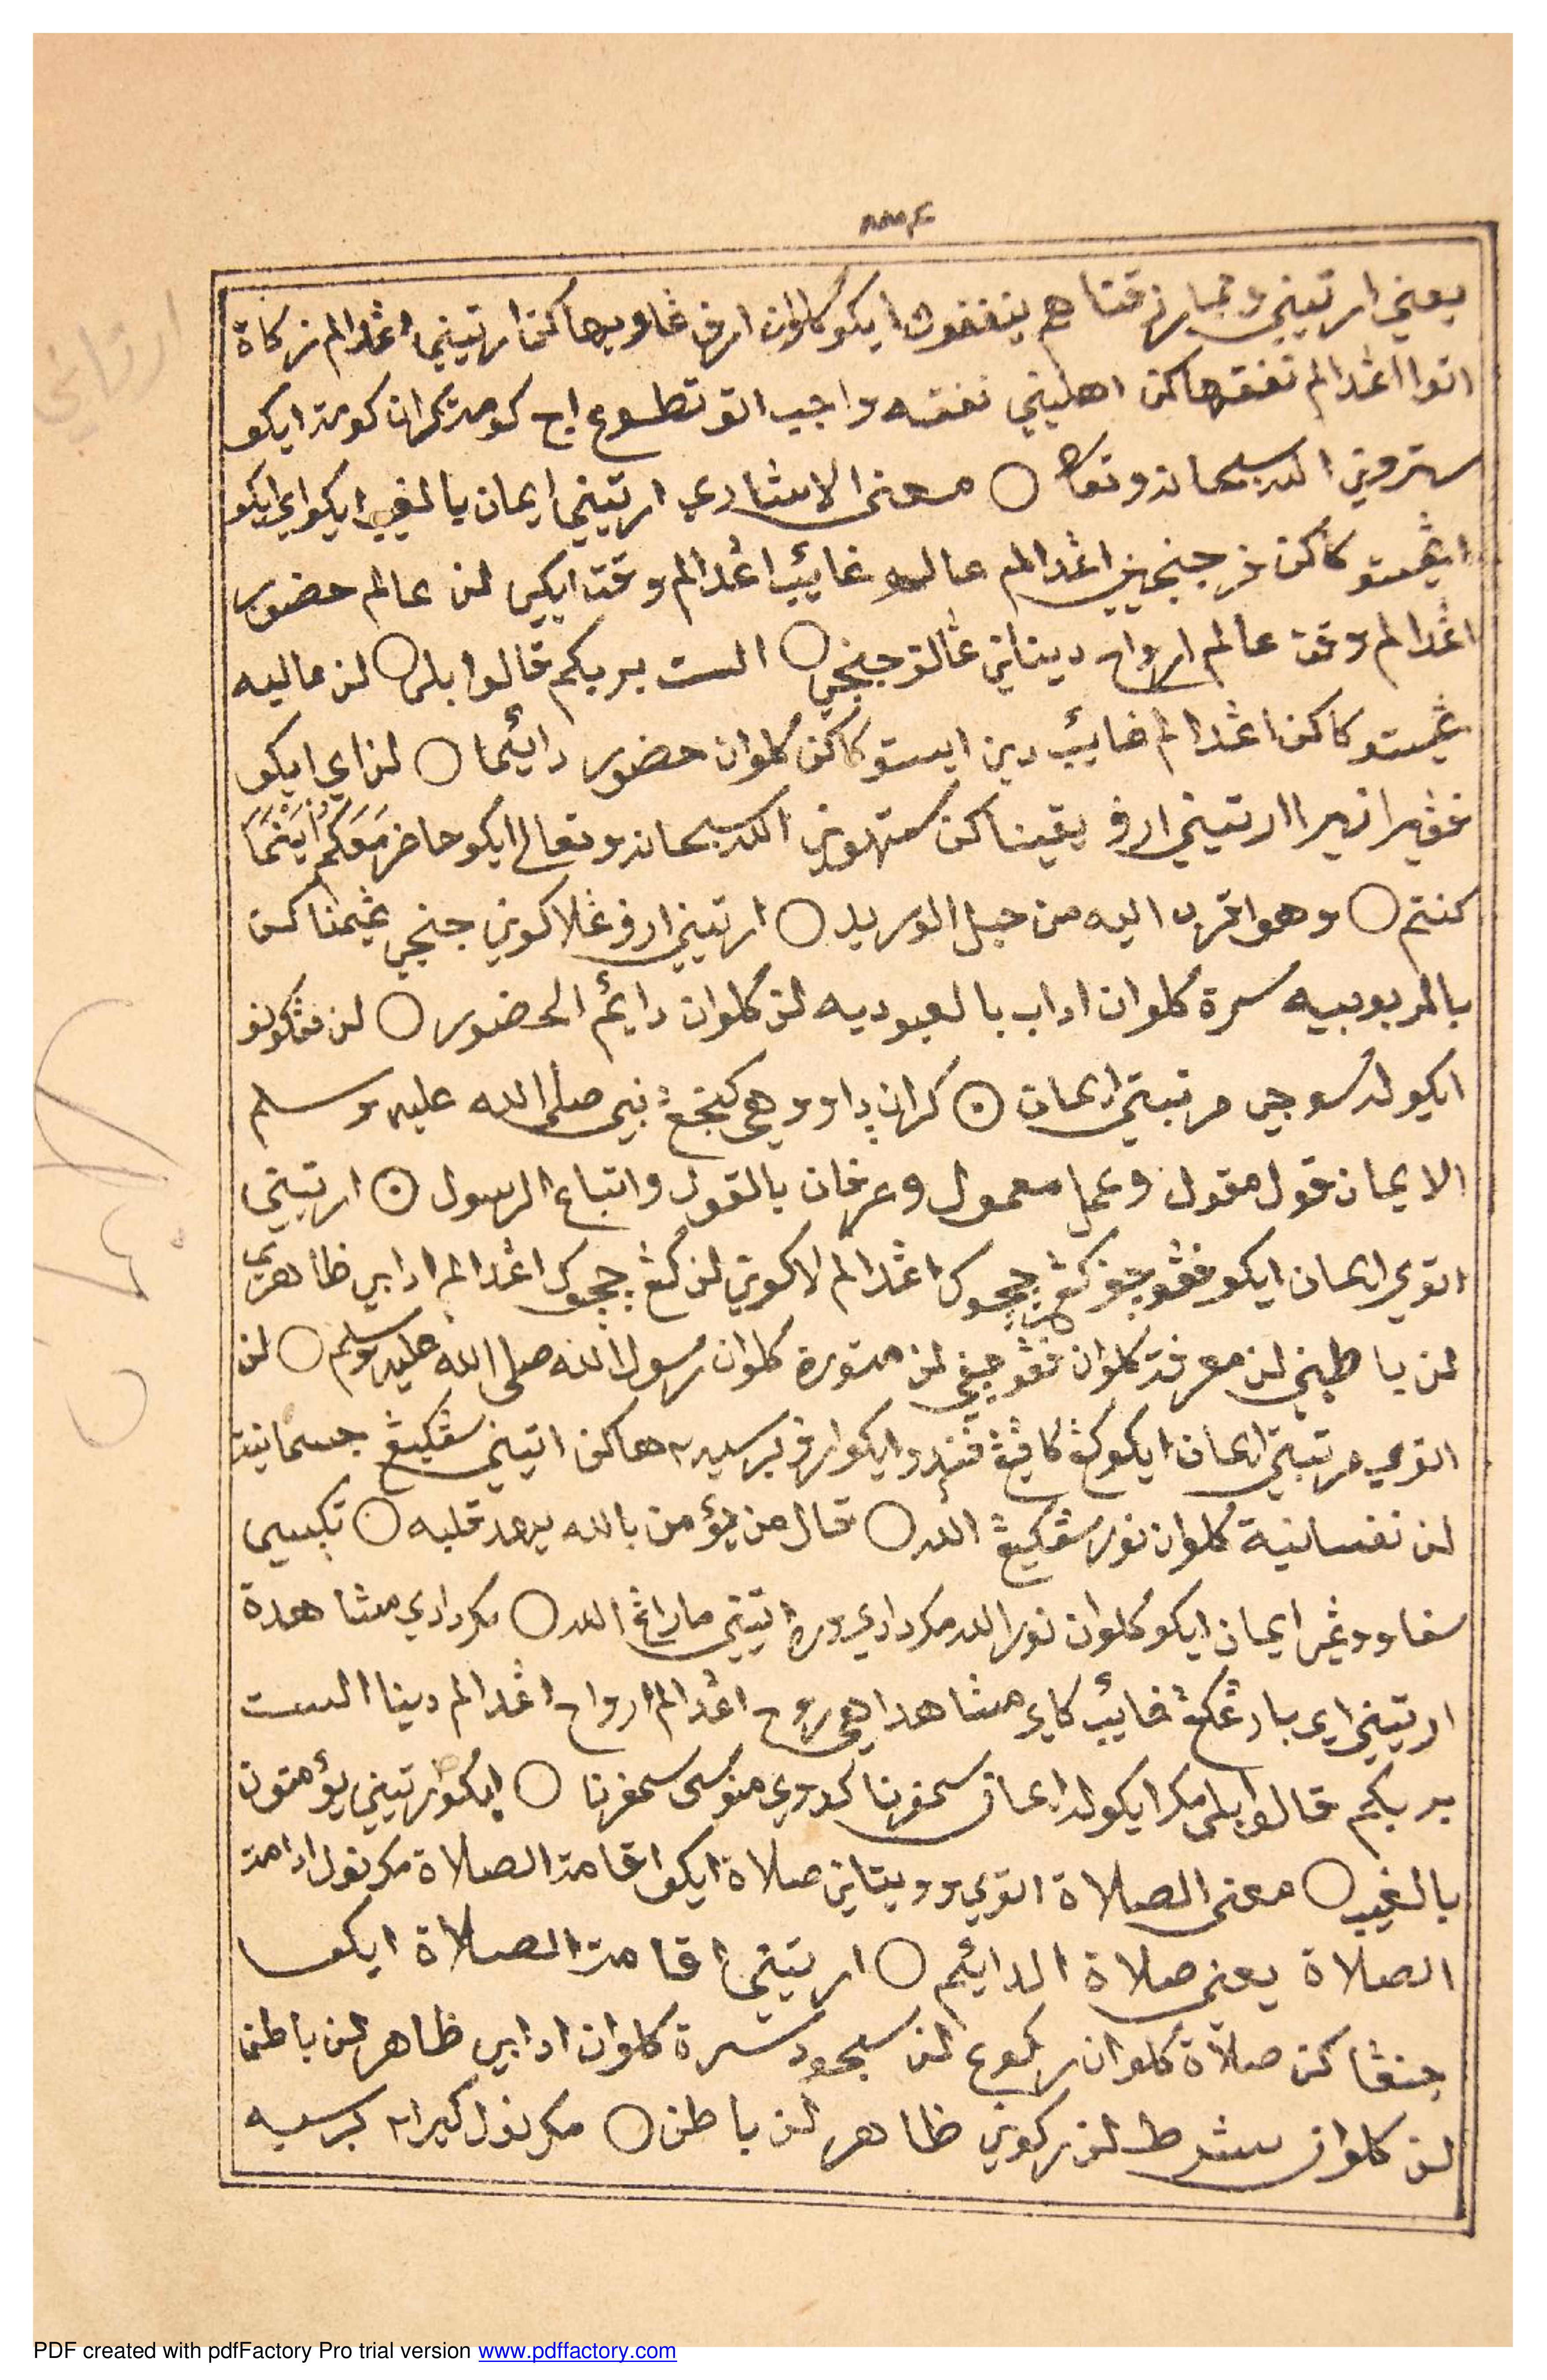 يعني ارتيني ومما رزقناهم ينفقون ايكو كلوان ارف غاويهاكن ارتيني اڠدالم زكاة
اتوا اڠدالم نفقهاكن اهليني نفقه واجب اتو تطوع اج كومد كران كومد ايكو
سترويني الله سبحانه وتعالى ○ معنى الاشاري ارتيني ايمان بالغيب ايكو اي ايكو
اڠيستوكاكن فرجنجيين اڠدالم عالم غايب اڠدالم وقت ايكي لن عالم حضور
اڠدالم وقت عالم ارواح ديناني ڠالف جنجي ○ الست بربكم قالوا بلى ○ لن ماليه
ڠيستوكاكن اڠدالم غايب دين ايستوكاكن كلوان حضور دائما ○ لن اي ايكو
فقيرا نيرا ارتيني ارف يقيناكن ستهوني الله سبحانه وتعالى ايكو حاضر مَعَكُم أَيْنَمَا
كنتم ○ وهو اقرب اليه من حبل الوريد ○ ارتيني ارف ڠلاكوني جنجي ڠيمناكن
بالربوبيه سرة كلوان اداب بالعبوديه لن كلوان دايم الحضور ○ لن مڠكونو
ايكو لد سوجي مرتبتي ايمان ○ كران داووهي كنجڠ نبي صلى الله عليه وسلم
الايمان قول مقول وعمل معمول وعرفان بالقول واتباع الرسول ○ ارتيني
اتوي ايمان ايكو فڠوجف كڠ ججوك اڠدالم لاكوني لن كڠ ججوك اڠدالم ادابي ظاهري
لن باطني لن معرفة كلوان فڠوجفي لن متورة كلوان رسول الله صلى الله عليه وسلم ○ لن
اتوي مرتبتي ايمان ايكو كڠ كافيڠ فيندو ايكو ارف برسيهاكن اتيني سڠكيڠ جسمانية
لن نفسانية كلوان نور سڠكيڠ الله ○ قال من يؤمن بالله يهد قلبه ○ تكبسيي
سفا ووڠ ايمان ايكو كلوان نور الله مك دادي وره اتيني ماراڠ الله ○ مك دادي مشاهدة
ارتيني اي بارڠ كڠ غايب كاي مشاهداهي روح اڠدالم ارواح اڠدالم دينا الست
بربكم قالوا بلى مك ايكولد ايمان سمفرنا كدوي منوسى سمفرنا ○ ايكو ارتيني يؤمنون
بالغيب ○ معنى الصلاة اتوي وويتاني صلاة ايكو اقامة الصلاة مك نول ادامة
الصلاة يعني صلاة الدايم ○ ارتيني اقامة الصلاة ايكو
جنڠاكن صلاة كلوان ركوع لن سجود سرة كلوان ادابي ظاهر لن باطن
لن كلوان شرط لن ركوني ظاهر لن باطن ○ مك نول كيراء برسيه
PDF created with pdfFactory Pro trial version www.pdffactory.com